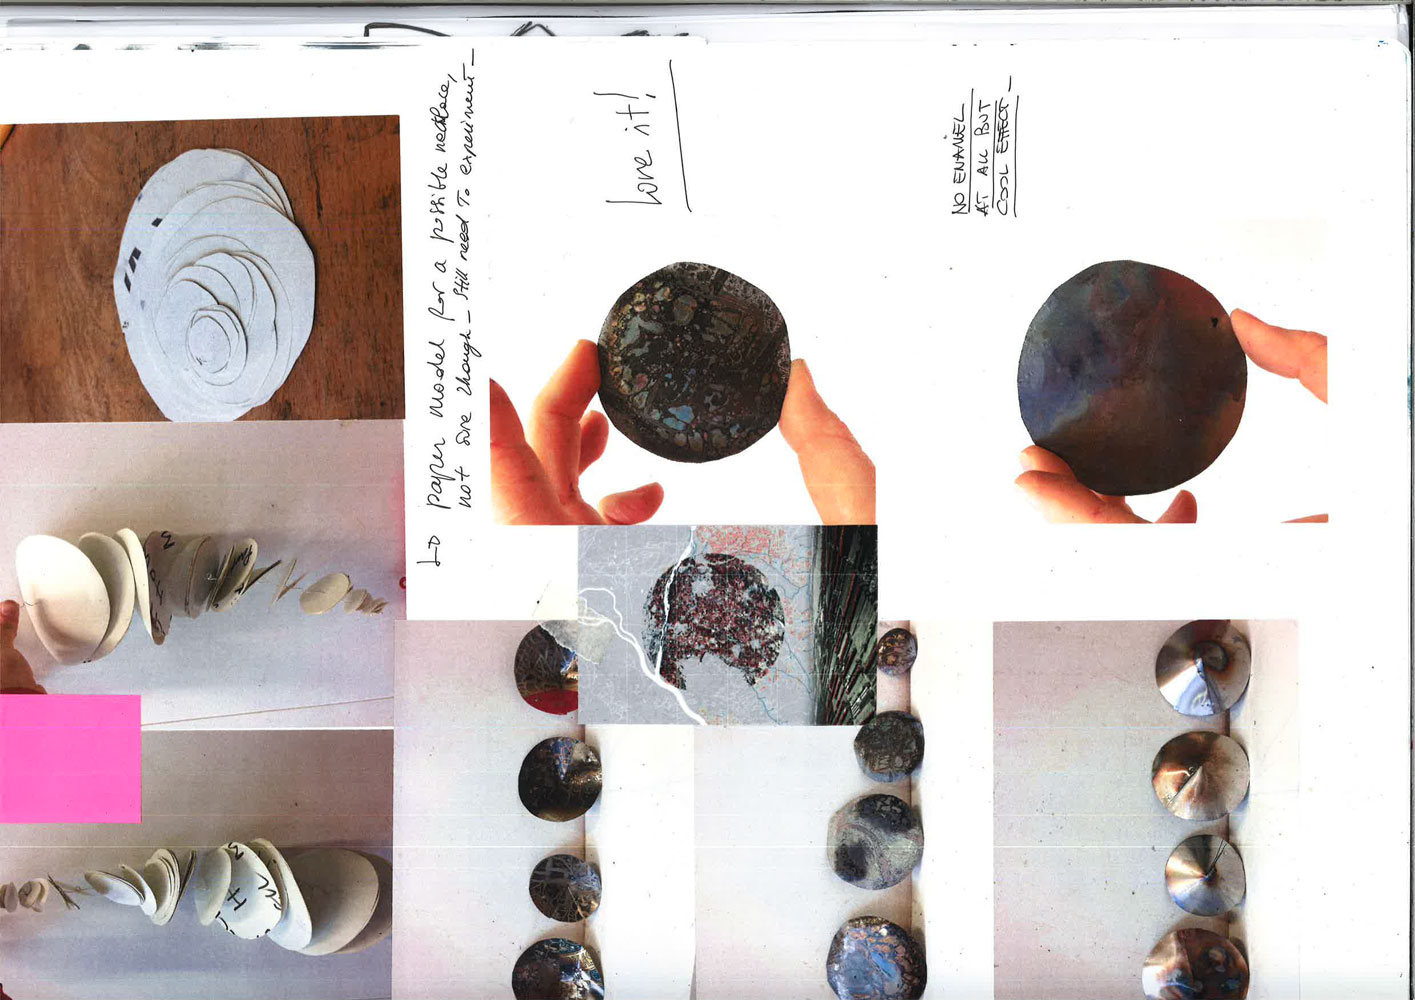 paper model for a possible necklace,
not sure though – still need to experiment –
Love it!
NO ENAMEL
AT ALL BUT
COOL EFFECT –